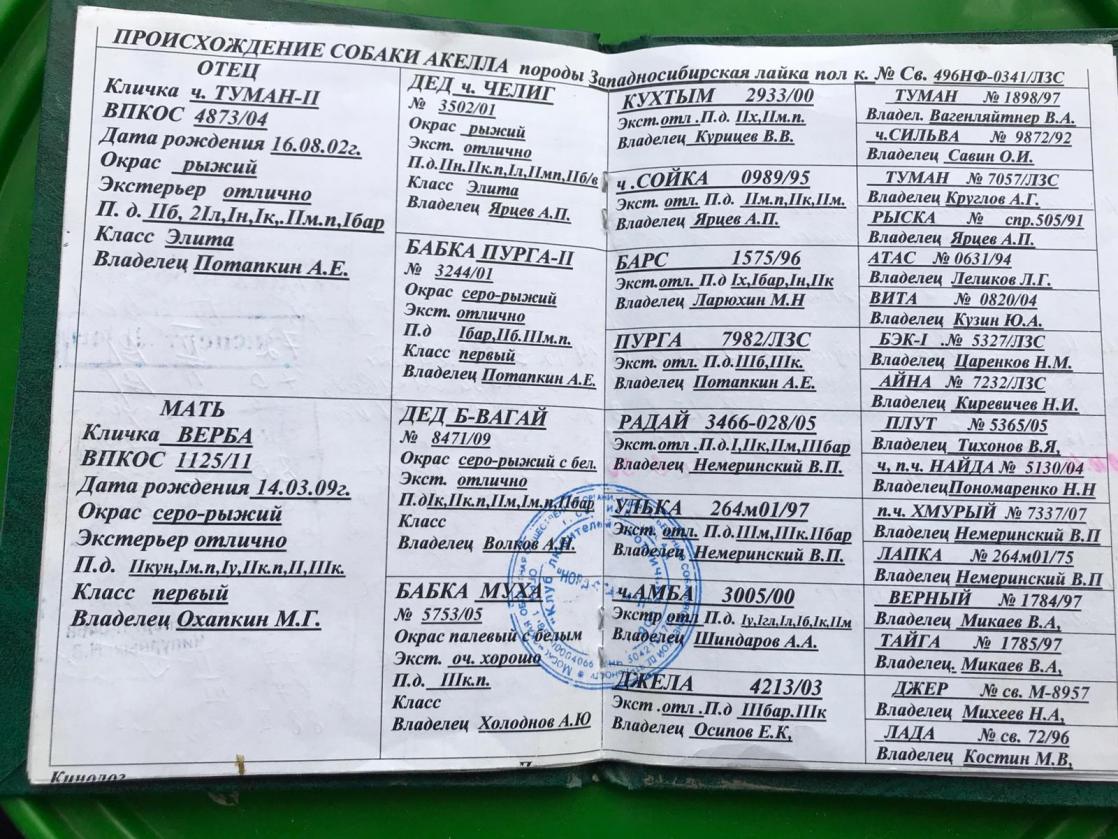 ПРОИСХОЖДЕНИЕ СОБАКИ АКЕЛЛА породы Западносибирская лайка пол к. № Св. 496НФ-0341/ЛЗС
ОТЕЦ
Кличка ч. ТУМАН-II
ВПКОС 4873/04
Дата рождения 16.08.02г.
Окрас рыжий
Экстерьер отлично
П. д. IIб, 2Iл,Iн,Iк,.IIм.п,Iбар
Класс Элита
Владелец Потапкин А.Е.
МАТЬ
Кличка ВЕРБА
ВПКОС 1125/11
Дата рождения 14.03.09г.
Окрас серо-рыжий
Экстерьер отлично
П.д. IIкун,Iм.п,Iу,IIк.п,II,IIIк.
Класс первый
Владелец Охапкин М.Г.
Кинолог
ДЕД ч. ЧЕЛИГ
№ 3502/01
Окрас рыжий
Экст. отлично
П.д.IIн.IIк.п,Iл,IIмп,IIб/в
Класс Элита
Владелец Ярцев А.П.
БАБКА ПУРГА-II
№ 3244/01
Окрас серо-рыжий
Экст. отлично
П.д Iбар,IIб.IIIм.п.
Класс первый
Владелец Потапкин А.Е.
ДЕД Б-ВАГАЙ
№ 8471/09
Окрас серо-рыжий с бел.
Экст. отлично
П.дIк,IIк.п,IIм,Iм.п,IIбар
Класс
Владелец Волков А.Н.
БАБКА МУХА
№ 5753/05
Окрас палевый с белым
Экст. оч. хорошо
П.д. IIIк.п.
Класс
Владелец Холоднов А.Ю
КУХТЫМ 2933/00
Экст.отл .П.д. IIх,IIм.п.
Владелец Курицев В.В.
ч .СОЙКА 0989/95
Экст. отл. П.д. IIм.п,IIк,IIм.
Владелец Ярцев А.П.
БАРС 1575/96
Экст.отл. П.д Iх,Iбар,Iн,IIк
Владелец Ларюхин М.Н
ПУРГА 7982/ЛЗС
Экст. отл. П.д.IIIб,IIIк.
Владелец Потапкин А.Е.
РАДАЙ 3466-028/05
Экст.отл .П.д.I,IIк,IIм,IIIбар
Владелец Немеринский В.П.
УЛЬКА 264м01/97
Экст. отл. П.д.IIIм,IIIк.IIбар
Владелец Немеринский В.П.
ч.АМБА 3005/00
Экстр отл П.д. Iу,Iгл,Iл,Iб,Iк,IIм
Владелец Шиндаров А.А.
ДЖЕЛА 4213/03
Экст .отл .П.д IIIбар.IIIк
Владелец Осипов Е.К,
ТУМАН № 1898/97
Владел. Вагенляйтнер В.А.
ч.СИЛЬВА № 9872/92
Владелец Савин О.И.
ТУМАН № 7057/ЛЗС
Владелец Круглов А.Г.
РЫСКА № спр.505/91
Владелец Ярцев А.П.
АТАС № 0631/94
Владелец Леликов Л.Г.
ВИТА № 0820/04
Владелец Кузин Ю.А.
БЭК-I .№ 5327/ЛЗС
Владелец Царенков Н.М.
АЙНА № 7232/ЛЗС
Владелец Киревичев Н.И.
ПЛУТ № 5365/05
Владелец Тихонов В.Я,
ч, п.ч. НАЙДА № 5130/04
ВладелецПономаренко Н.Н
п.ч. ХМУРЫЙ № 7337/07
Владелец Немеринский В.П
ЛАПКА № 264м01/75
Владелец Немеринский В.П
ВЕРНЫЙ № 1784/97
Владелец Микаев В.А,
ТАЙГА № 1785/97
Владелец. Микаев В.А,
ДЖЕР № св. М-8957
Владелец Михеев Н.А,
ЛАДА № св. 72/96
Владелец Костин М.В,